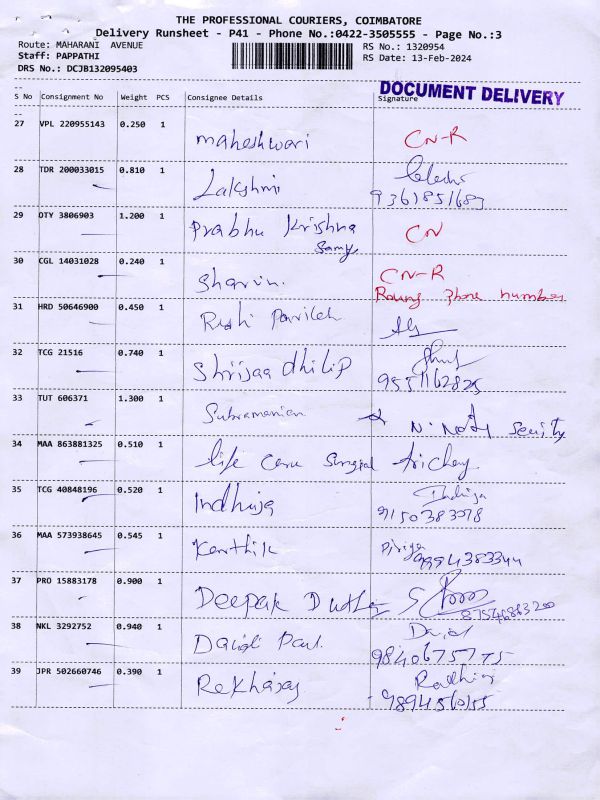 THE PROFESSIONAL COURIERS, COIMBATORE
Delivery Runsheet - P41 - Phone No.:0422-3505555 - Page No.:3
Route: MAHARANI AVENUE RS No.: 1320954
Staff: PAPPATHI RS Date: 13-Feb-2024
DRS No.: DCJB132095403
DOCUMENT DELIVERY
S No Consignment No Weight PCS Consignee Details Signature
27 VPL 220955143 0.250 1 maheshwari CN-R
28 TDR 200033015 0.810 1 Lakshmi
9361851689
29 OTY 3806903 1.200 1 Prabhu Krishna CN
Samy
30 CGL 14031028 0.240 1 Sharvin. CN-R
Roung phone number
31 HRD 50646900 0.450 1 Rishi
32 TCG 21516 0.740 1 Shrijaa dhilip
33 TUT 606371 1.300 1 Subramanian
34 MAA 863881325 0.510 1 life care Surgical trichey
35 TCG 40848196 0.520 1 Indhuja Indhuja
9150383078
36 MAA 573938645 0.545 1 Karthik Priya 9994383344
37 PRO 15883178 0.900 1 Deepak
38 NKL 3292752 0.940 1 David Paul. David
9840675775
39 JPR 502660746 0.390 1 Rekharaj
9894560155